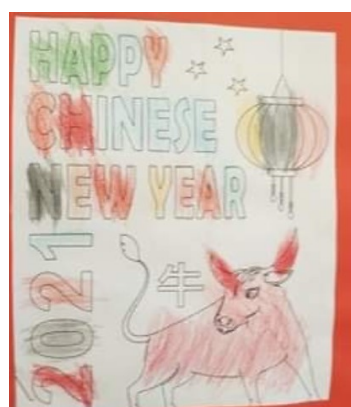 HAPPY
CHINESE
NEW YEAR
2021
牛